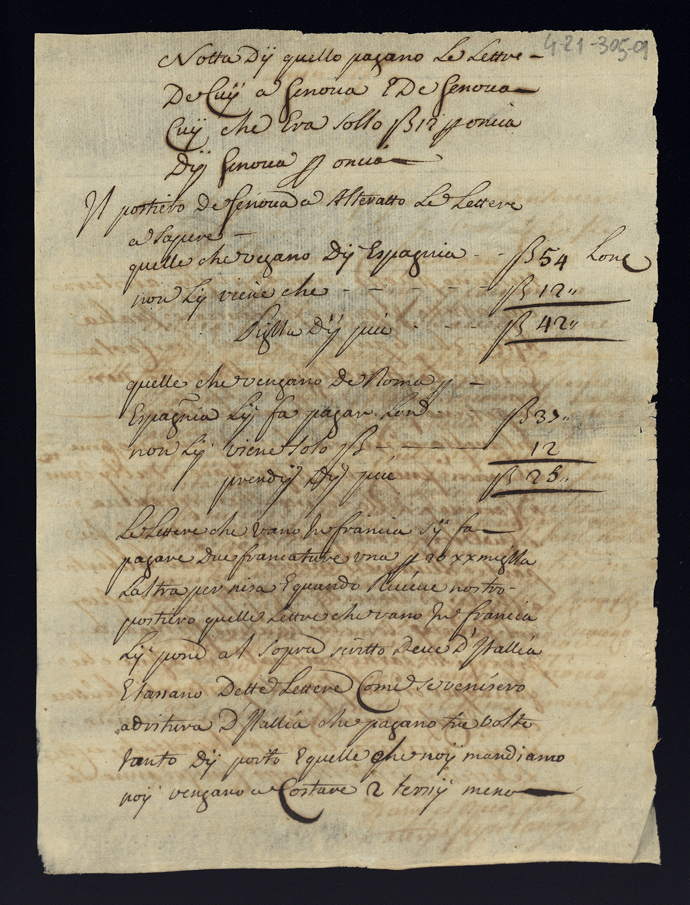 4-21-305-9
Notta Dij quello pagano Le Lettre
De Cuij a Genoua E De Genoua
Cuij che Era sollo ß 12 p onciа
Dij Genoua p oncia
Il postiero De Genoua a Alteratto Le Lettere
a Sapere
quelle che vegano Dij Espagnia - - ß 54 Lonc
non Lij viene che - - - - ß 12"
Piglia Dij piu - - - ß 42"
quelle che vengano De Roma p
Espagnia Lij fa pagar Lonc ß 37"
non Lij viene solo ß - 12
prendij Dij piu ß 25"
Le Lettere che vano In francia Sij fa
pagare Due francature vna p xx miglia
Laltra per nisa E quando Riceue nostro
postiero quelle Lettre che vano In francia
Lij pone al Sopra scritto Deue D'Itallia
E tassano Dette Lettere Come se venisero
adritura D'Itallia che pagano tre volte
tanto Dij porto E quelle che noij mandiamo
noij vengano a Costare 2 tersij meno